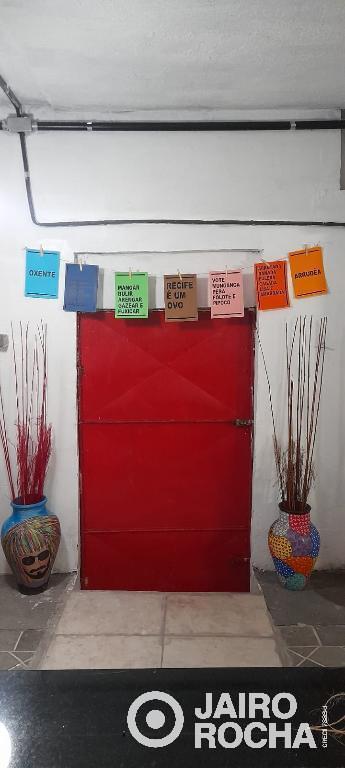 OXENTE
MANGAR
BULIR
ARENGAR
GAZEAR E
FUXICAR
RECIFE
É UM
OVO
VOTE
MUNGANGA
PEBA
FOLOTE E
PIPOCO
ARRUDEA
JAIRO
ROCHA